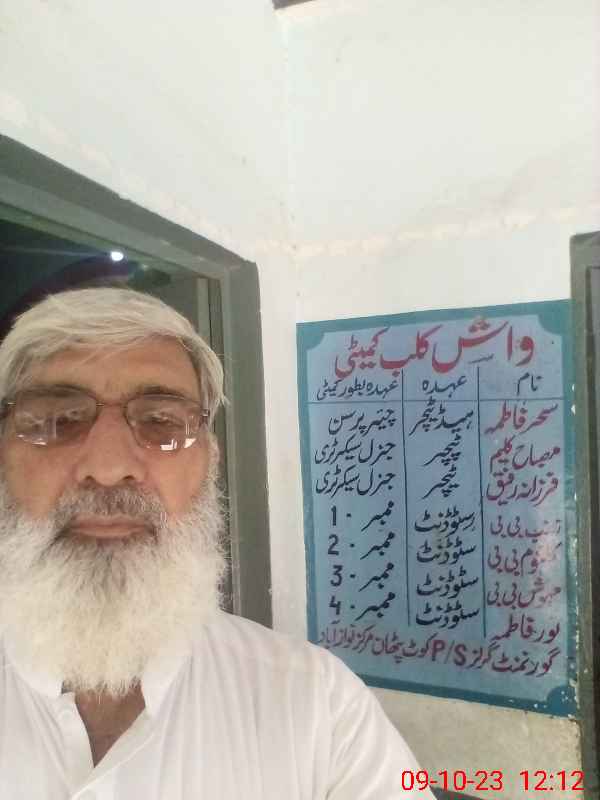 واش کلب کمیٹی
نام عہدہ عہدہ بطور کمیٹی
سحر فاطمہ ہیڈ ٹیچر چیئر پرسن
مصباح کلیم ٹیچر جنرل سیکرٹری
فرزانہ رفیق ٹیچر جنرل سیکرٹری
زینب بی بی سٹوڈنٹ ممبر 1
کلثوم بی بی سٹوڈنٹ ممبر 2
مہوش بی بی سٹوڈنٹ ممبر 3
نور فاطمہ سٹوڈنٹ ممبر 4
گورنمنٹ گرلز P/S کوٹ پٹھان مرکز نواز آباد
09-10-23 12:12